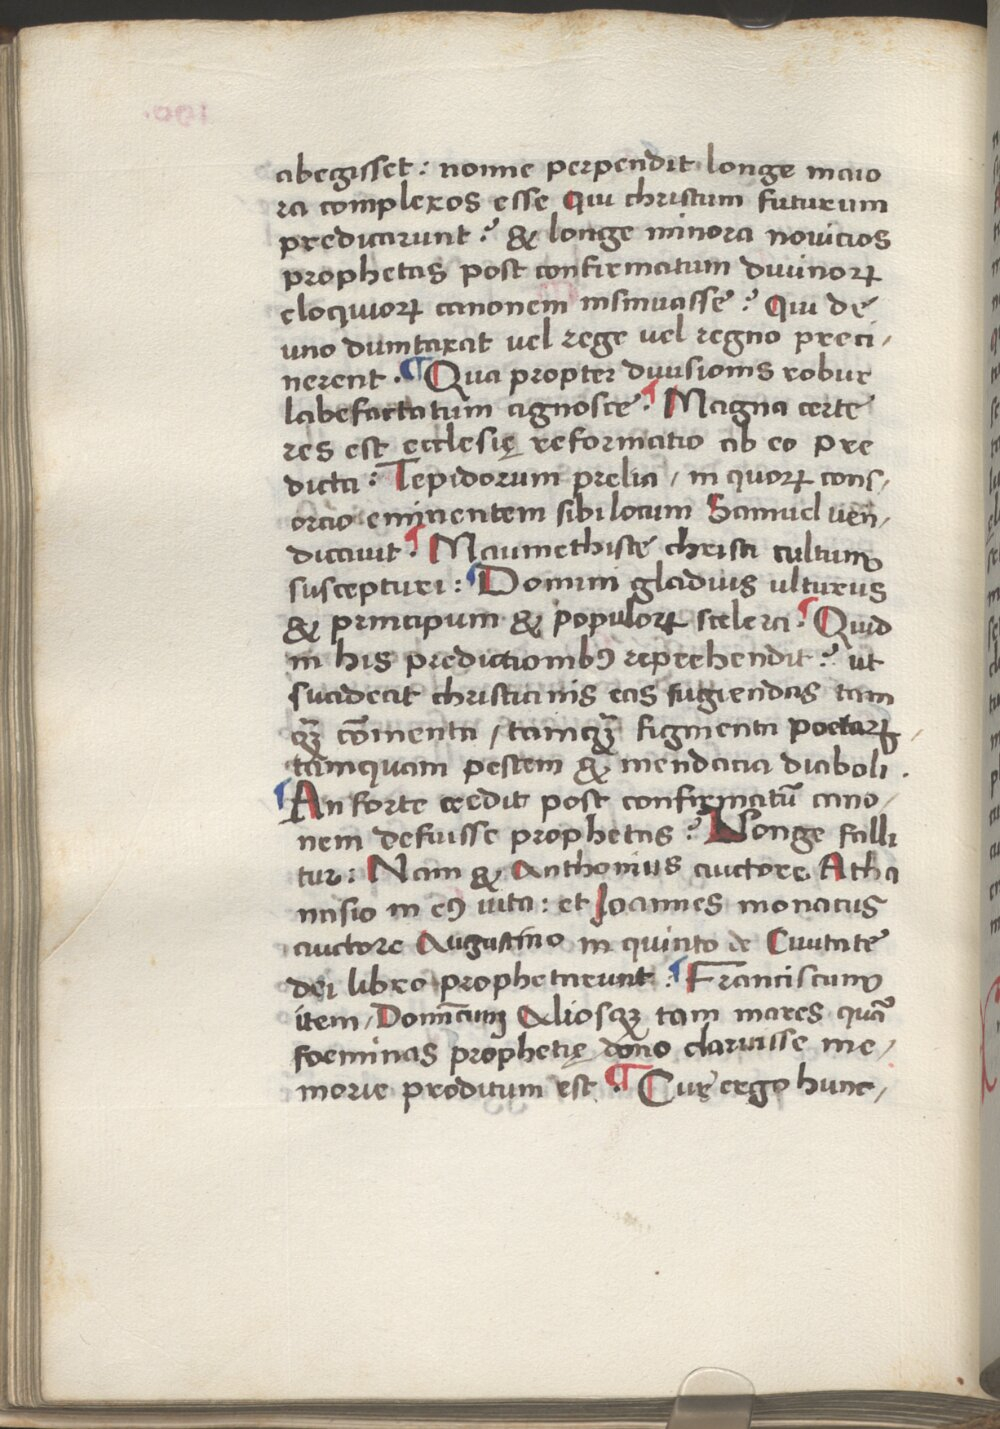 abegisset : nonne perpendit longe maio
ra complexos esse Qui christum futurum
predicarunt ? & longe minora novicios
prophetas post confirmatum divinoꝝ
eloquioꝝ canonem insinuasse ? Qui de
uno dumtaxat vel rege vel regno preci /
nerent . ¶ Qua propter divisionis robur
labefactatum agnosce . ¶ Magna certe
res est ecclesię reformatio ab eo pre
dicta : Tepidorum prelia / in quoꝝ cons /
orcio eminentem sibi locum Samuel ven /
dicavit . ¶ Maumethiste christi cultum
suscepturi : ¶ Domini gladius ulturus
& principum & populoꝝ scelera . ¶ Quid
in his predictionibꝰ reprehendit ? ut
suadeat christianis eas fugiendas tam
qꝫ cōmenta / tamqꝫ figmenta poetaꝝ /
tamquam pestem & mendacia diaboli .
¶ An forte credit post confirmatū cano /
nem defuisse prophetas ? Longe falli
tur : Nam & Anthonius auctore Atha
nasio in eꝰ vita : et Ioannes monacus
auctore Augustino in quinto de Civitate
dei libro prophetarunt . ¶ Franciscum
item / Dominicum Aliosqꝫ tam mares quā
foeminas prophetię dono claruisse me /
morie proditum est . ¶ Cur ergo hunc /